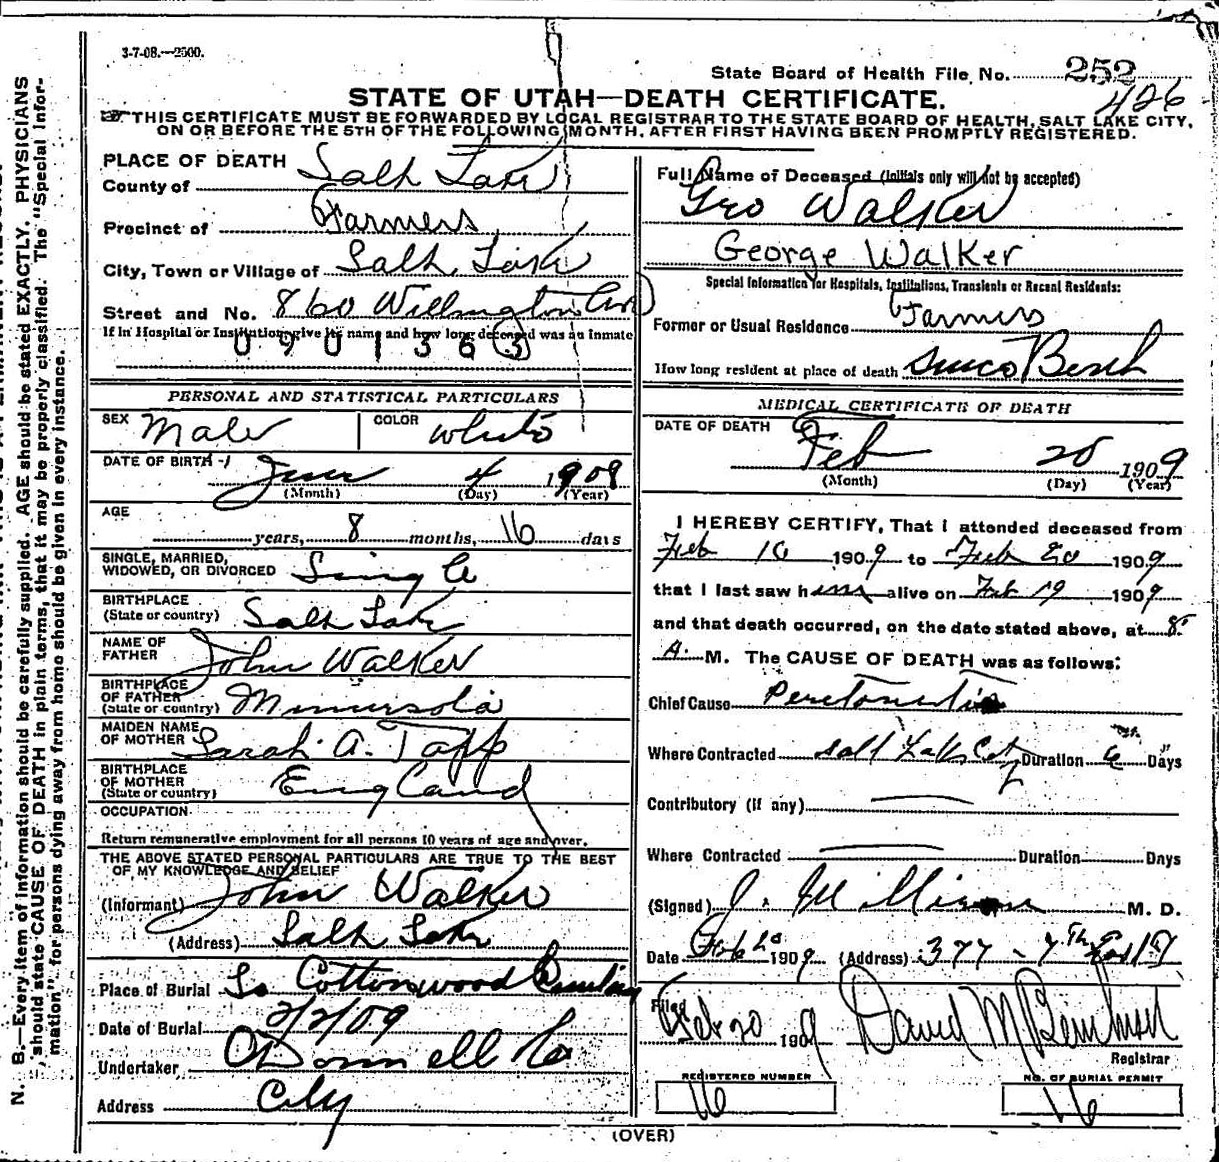 3-7-08.—2500.
State Board of Health File No. 252
426
STATE OF UTAH—DEATH CERTIFICATE.
THIS CERTIFICATE MUST BE FORWARDED BY LOCAL REGISTRAR TO THE STATE BOARD OF HEALTH, SALT LAKE CITY,
ON OR BEFORE THE 5TH OF THE FOLLOWING MONTH, AFTER FIRST HAVING BEEN PROMPTLY REGISTERED.
PLACE OF DEATH
County of Salt Lake
Precinct of Farmers
City, Town or Village of Salt Lake
Street and No. 860 Willmington Ave
If in Hospital or Institution, give its name and how long deceased was an inmate
0901363
PERSONAL AND STATISTICAL PARTICULARS
SEX Male COLOR white
DATE OF BIRTH June 4 1908
(Month) (Day) (Year)
AGE
years, 8 months, 16 days
SINGLE, MARRIED,
WIDOWED, OR DIVORCED Single
BIRTHPLACE
(State or country) Salt Lake
NAME OF
FATHER John Walker
BIRTHPLACE
OF FATHER
(State or country) Minnersota
MAIDEN NAME
OF MOTHER Sarah A. Tapp
BIRTHPLACE
OF MOTHER
(State or country) England
OCCUPATION
Return remunerative employment for all persons 10 years of age and over.
THE ABOVE STATED PERSONAL PARTICULARS ARE TRUE TO THE BEST
OF MY KNOWLEDGE AND BELIEF
(Informant) John Walker
(Address) Salt Lake
Place of Burial So Cottonwood
Date of Burial 2/2/09
Undertaker O'Donnell Co
Address City
Full Name of Deceased (Initials only will not be accepted)
Geo Walker
George Walker
Special Information for Hospitals, Institutions, Transients or Recent Residents:
Former or Usual Residence Farmers
How long resident at place of death since Berth
MEDICAL CERTIFICATE OF DEATH
DATE OF DEATH
Feb 20 1909
(Month) (Day) (Year)
I HEREBY CERTIFY, That I attended deceased from
Feb 16 1909 to Feb 20 1909
that I last saw h alive on Feb 19 1909
and that death occurred, on the date stated above, at 8
A. M. The CAUSE OF DEATH was as follows:
Chief Cause Peretonitis
Where Contracted Salt Lake City Duration 6 Days
Contributory (if any)
Where Contracted Duration Days
(Signed) J. M. D.
Date Feb 20 1909 (Address) 377 - 7th East
Filed
Feb 20 1909 David M
Registrar
REGISTERED NUMBER
16
NO. OF BURIAL PERMIT
16
(OVER)
N. B.—Every item of information should be carefully supplied. AGE should be stated EXACTLY. PHYSICIANS
should state CAUSE OF DEATH in plain terms, that it may be properly classified. The "Special Infor-
mation" for persons dying away from home should be given in every instance.